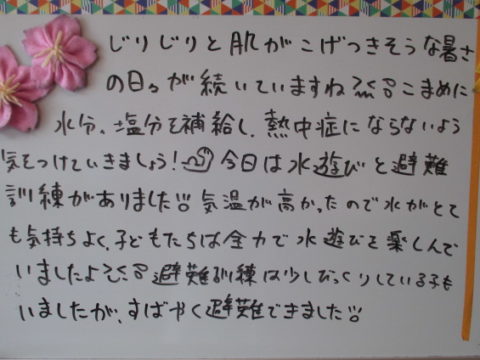 じりじりと肌がこげつきそうな暑さ
の日々が続いていますね こまめに
水分、塩分を補給し、熱中症にならないよう
気をつけていきましょう! 今日は水遊びと避難
訓練がありました!! 気温が高かったので水がとて
も気持ちよく、子どもたちは全力で水遊びを楽しんで
いましたよ 避難訓練は少しびっくりしている子も
いましたが、すばやく避難できました!!